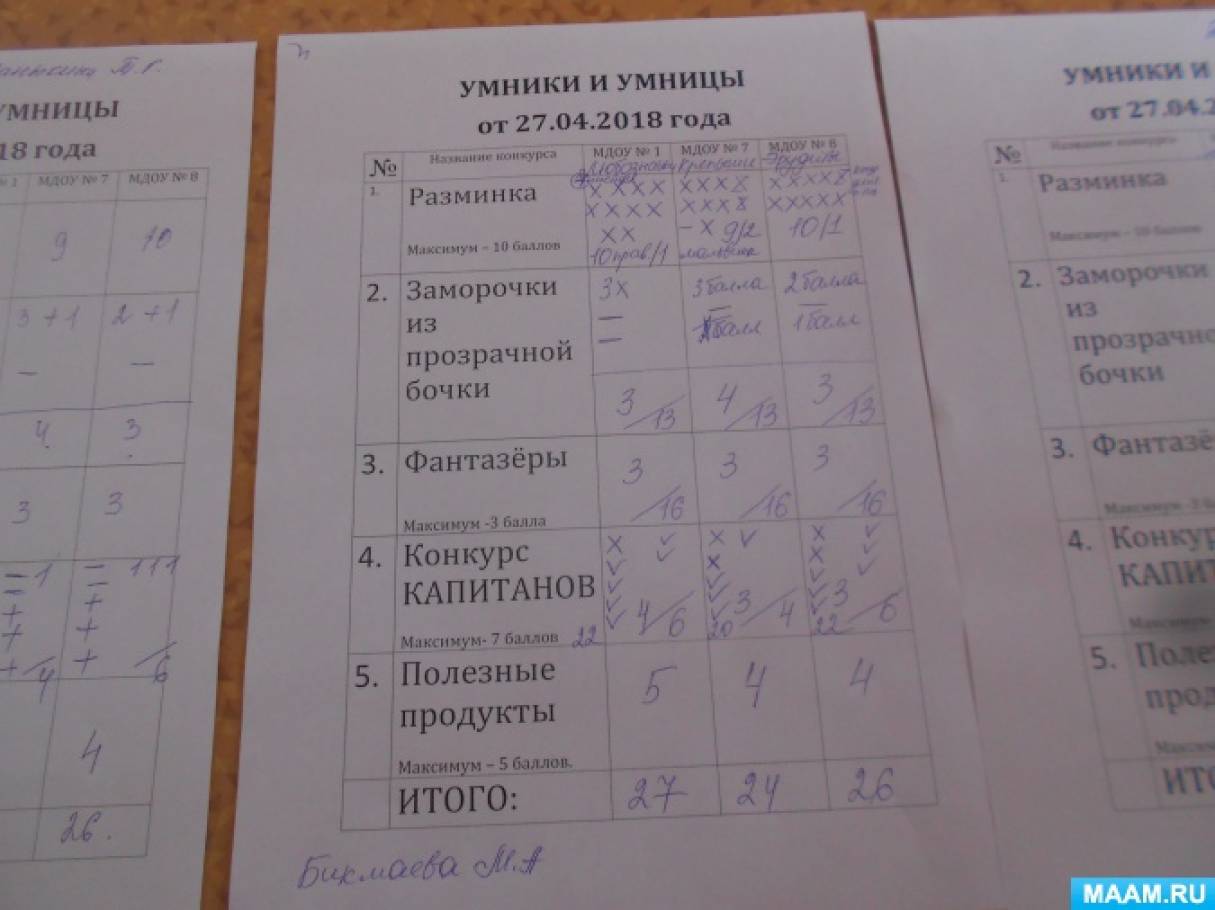 УМНИЦЫ
18 года
МДОУ № 7 МДОУ № 8
9 10
3 +1 2 +1
— —
4 3
3 3
4 6
4
26.
УМНИКИ И УМНИЦЫ
от 27.04.2018 года
№ Название конкурса МДОУ № 1 МДОУ № 7 МДОУ № 8
1. Разминка
х х х х х х х х х х х х х
х х х х х х х х х х х х х
х х – х 9/2 10/1
Максимум – 10 баллов 10прав/1
2. Заморочки 3х 3балла 2балла
из — —
прозрачной — балл 1балл
бочки
3/13 4/13 3/13
3. Фантазёры 3 3 3
/16 /16 /16
Максимум -3 балла
4. Конкурс
КАПИТАНОВ 4/6 3/4 3/6
Максимум- 7 баллов 22 20 22
5. Полезные
продукты 5 4 4
Максимум – 5 баллов.
ИТОГО: 27 24 26
Бикмаева М.А
УМНИКИ И
от 27.04.2
№ Название конкурса
1. Разминка
Максимум – 10 баллов
2. Заморочки
из
прозрачно
бочки
3. Фантазё
Максимум -3
4. Конкур
КАПИТ
5. Поле
прод
ИТО
MAAM.RU